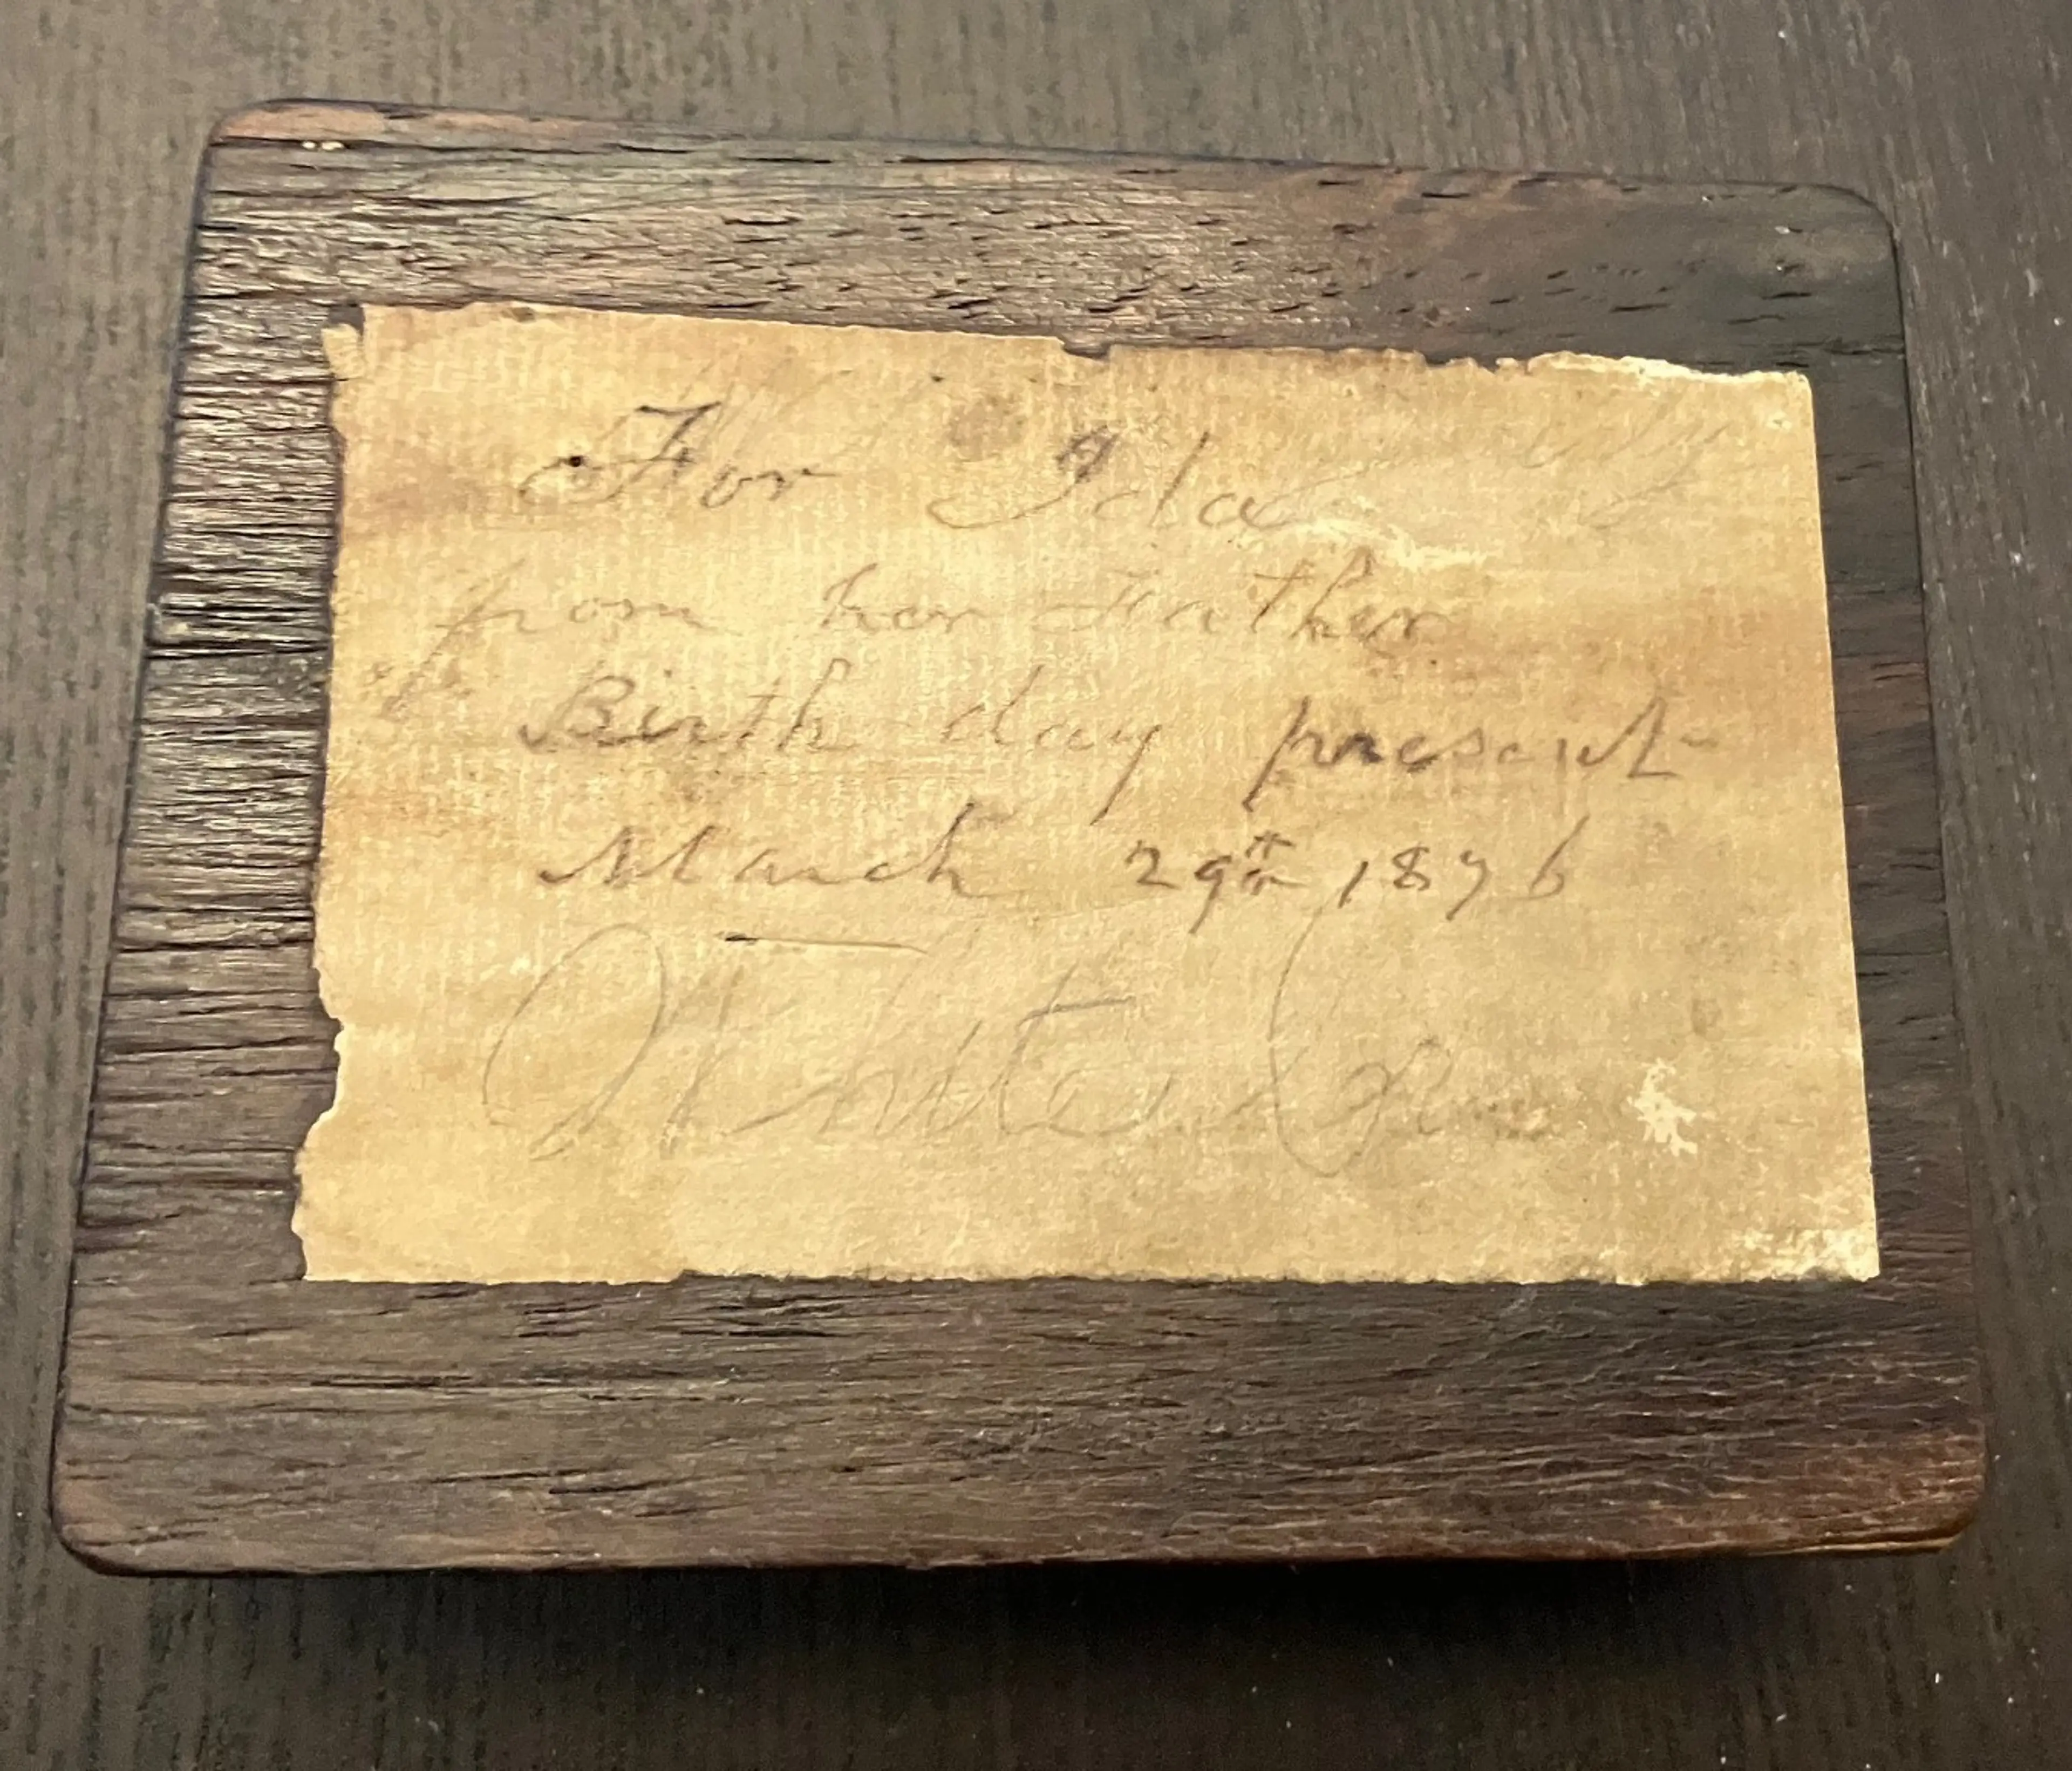 For Ida
from her Father
Birth day present
March 29th 1876
White